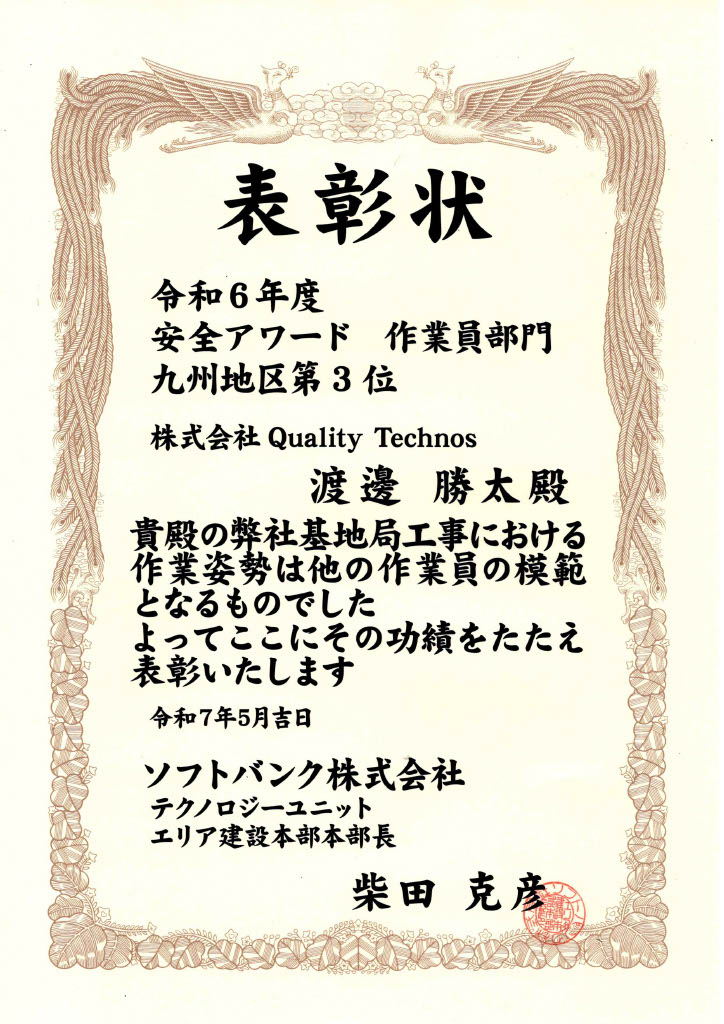 表彰状
令和6年度
安全アワード 作業員部門
九州地区第3位
株式会社 Quality Technos
渡邊 勝太殿
貴殿の弊社基地局工事における
作業姿勢は他の作業員の模範
となるものでした
よってここにその功績をたたえ
表彰いたします
令和7年5月吉日
ソフトバンク株式会社
テクノロジーユニット
エリア建設本部本部長
柴田 克彦